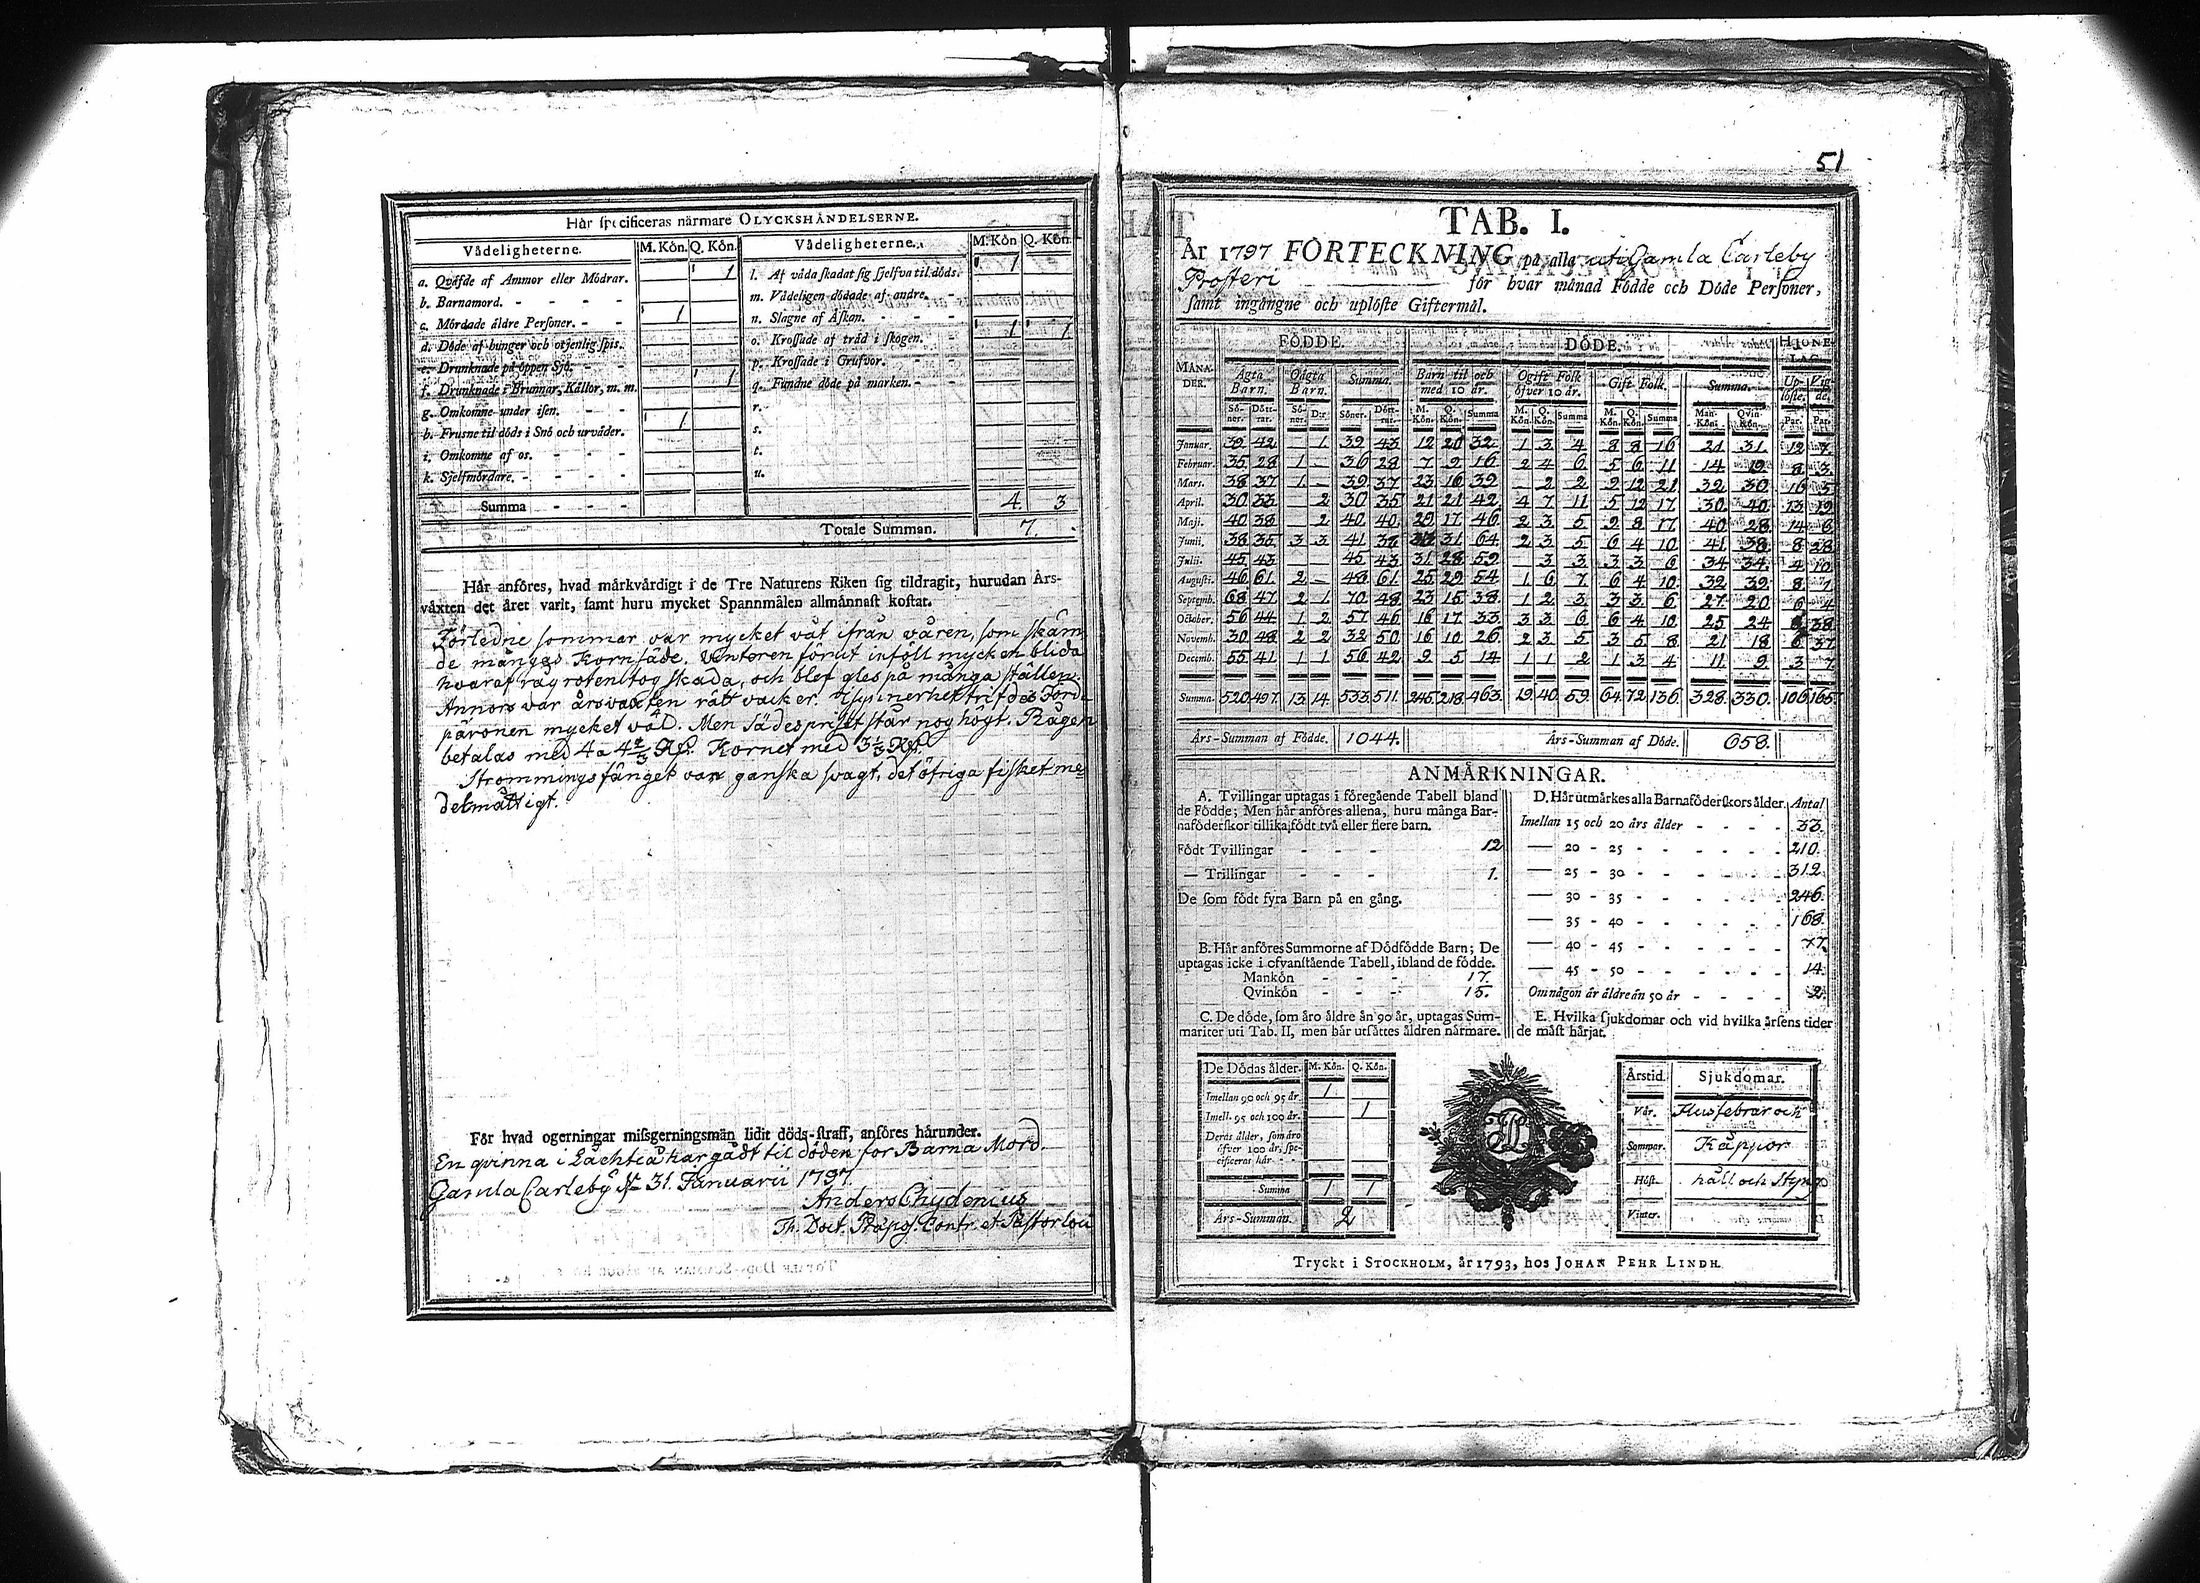 Hår specificeras nårmare OLYCKSHÅNDELSERNE.
Vådeligheterne. M. Kön. Q. Kön. Vådeligheterne. M. Kön Q. Kön.
a. Qväfde af Ammor eller Mödrar. 1 l. Af våda skadat sig sjelfva til döds. 1
b. Barnamord. m. Vådeligen dödade af andre.
c. Mördade äldre Personer. 1 n. Slagne af Åskan. 1 1
d. Döde af hunger och otjenlig spis. o. Krossade af träd i skogen.
e. Drunknade på öppen Sjö. p. Krossade i Grufvor.
f. Drunknade i Brunnar, Källor, m. m. 1 q. Fundne döde på marken.
g. Omkomne under isen. r.
h. Frusne til döds i Snö och urväder. 1 s.
i. Omkomne af os. t.
k. Sjelfmördare. u.
Summa 4. 3
Totale Summan. 7.
Hår anföres, hvad mårkvårdigt i de Tre Naturens Riken sig tildragit, hurudan Års-
våxten det året varit, samt huru mycket Spannmålen allmånnast kostat.
Förledne sommar var mycket våt ifrån våren, som skäm
de mångas Kornsäde. Vinteren förut inföll mycken blida
hvaraf rågroten tog skada, och blef gles på många ställen.
Annors var årsvaxten rätt vacker. Isynnerhet trifdes Jord
päronen mycket väl. Men sädespriset står nog högt. Rågen
betalas med 4 a 4 2/3 Rd. Kornet med 3 1/3 Rd.
Strömmingsfånget var ganska svagt, det öfriga fisket me
delmåttigt.
För hvad ogerningar missgerningsmän lidit döds-straff, anföres hårunder.
En qvinna i Lächteå har gådt til döden för Barna Mord.
Gamla Carleby d. 31. Januarii 1797.
Anders Chydenius
Th. Doct. Præpos. Contr. et Pastor loci
51
TAB. I.
År 1797 FÖRTECKNING på alla uti Gamla Carleby
Prosteri för hvar månad Födde och Döde Personer,
samt ingångne och uplöste Giftermål.
MÅNADER. FÖDDE. DÖDE. HJONELAG.
Ägta Barn. Oägta Barn. Summa. Barn til och med 10 år. Ogift Folk öfver 10 år. Gift Folk. Summa. Uplöste. Vigde.
Söner. Döttrar. Söner. D:r Söner. Döttrar. M. Kön. Q. Kön. Summa M. Kön. Q. Kön. Summa M. Kön. Q. Kön. Summa Mankön. Qvinkön. Par. Par.
Januar. 39 42 1 39 43 12 20 32 1 3 4 8 8 16 21 31 12 7
Februar. 35 28 1 36 28 7 9 16 2 4 6 5 6 11 14 19 8 3
Mars. 38 37 1 39 37 23 16 39 2 2 9 12 21 32 30 16 5
April. 30 33 2 30 35 21 21 42 4 7 11 5 12 17 30 40 13 19
Maji. 40 38 2 40 40 29 17 46 2 3 5 9 8 17 40 28 14 6
Junii. 38 35 3 3 41 38 33 31 64 2 3 5 6 4 10 41 38 8 28
Julii. 45 43 45 43 31 28 59 3 3 3 3 6 34 34 4 10
Augusti. 46 61 2 48 61 25 29 54 1 6 7 6 4 10 32 39 8 1
Septemb. 68 47 2 1 70 48 23 15 38 1 2 3 3 3 6 27 20 6 4
October. 56 44 1 2 57 46 16 17 33 3 3 6 6 4 10 25 24 8 38
Novemb. 30 48 2 2 32 50 16 10 26 2 3 5 3 5 8 21 18 6 37
Decemb. 55 41 1 1 56 42 9 5 14 1 1 2 1 3 4 11 9 3 7
Summa. 520 497 13 14 533 511 245 218 463 19 40 59 64 72 136 328 330 106 165
Års-Summan af Födde. 1044. Års-Summan af Döde. 658.
ANMÄRKNINGAR.
A. Tvillingar uptagas i föregående Tabell bland
de Födde; Men hår anföres allena, huru många Bar-
naföderskor tillika födt två eller flere barn.
Födt Tvillingar 12
— Trillingar 1.
De som födt fyra Barn på en gång.
B. Hår anföres Summorne af Dödfödde Barn; De
uptagas icke i ofvanstående Tabell, ibland de födde.
Mankön 17.
Qvinkön 15.
C. De döde, som åro åldre ån 90 år, uptagas Sum-
mariter uti Tab. II, men hår utsättes åldren nårmare.
D. Hår utmårkes alla Barnaföderskors ålder. Antal
Imellan 15 och 20 års ålder 33.
— 20 - 25 210.
— 25 - 30 312
— 30 - 35 246.
— 35 - 40 168.
— 40 - 45 77.
— 45 - 50 14.
Om någon är äldre än 50 år 2.
E. Hvilka sjukdomar och vid hvilka årsens tider
de måst hårjat.
De Dödas ålder. M. Kön. Q. Kön.
Imellan 90 och 95 år 1
Imell. 95 och 100 år. 1
Deras ålder, som äro
öfver 100 år, spe-
cificeras här
Summa 1 1
Års-Summan. 2
Årstid. Sjukdomar.
Vår. Flussfebrar och
Sommar. Kåppor
Höst. håll och Styng
Vinter.
Tryckt i STOCKHOLM, år 1793, hos JOHAN PEHR LINDH.